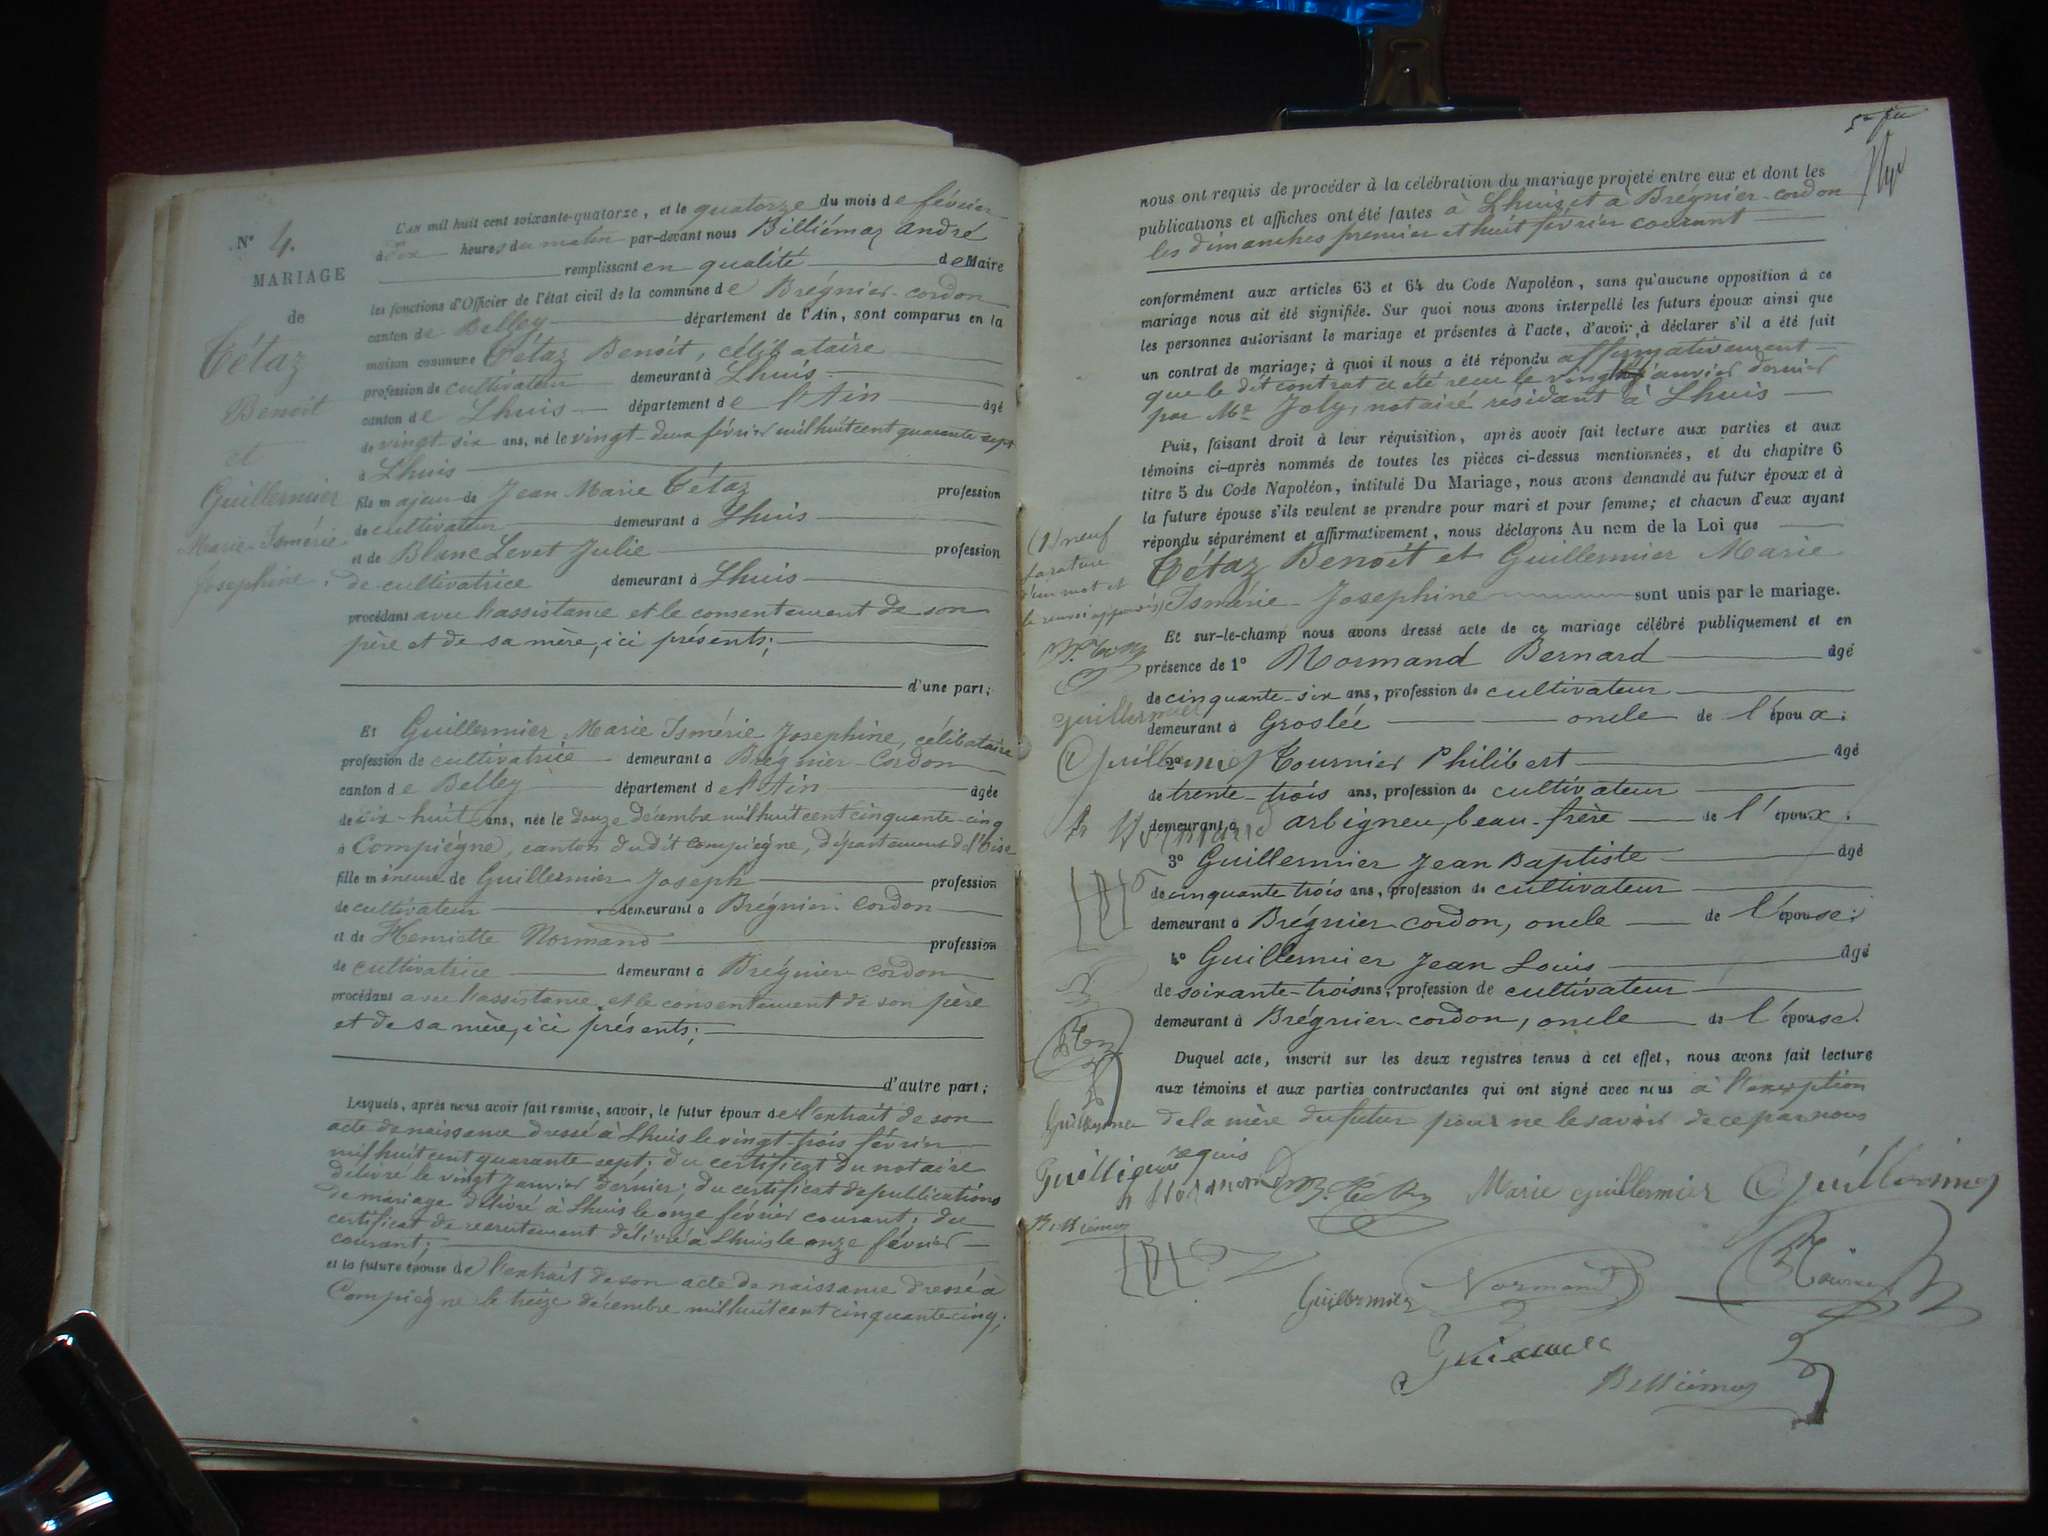 N° 4.
MARIAGE
de
Tétaz
Benoit
et
Guillermier
Marie-Ismérie
Josephine.
L'AN mil huit cent soixante-quatorze, et le quatorze du mois de février
à dix heures du matin par-devant nous Billiémaz andré
remplissant en qualité de Maire
les fonctions d'Officier de l'état civil de la commune de Brégnier-cordon
canton de Belley département de l'Ain, sont comparus en la
maison commune Tétaz Benoit, célibataire
profession de cultivateur demeurant à Lhuis
canton de Lhuis département de l'Ain âgé
de vingt six ans, né le vingt-deux février mil huit cent quarante sept
à Lhuis
fils majeur de Jean Marie Tétaz profession
de cultivateur demeurant à Lhuis
et de Blanc Levet Julie profession
de cultivatrice demeurant à Lhuis
procédant avec l'assistance et le consentement de son
père et de sa mère, ici présents;
d'une part;
Et Guillermier Marie Ismérie Josephine, célibataire
profession de cultivatrice demeurant à Brégnier-Cordon
canton de Belley département de l'Ain âgée
de dix-huit ans, née le douze décembre mil huit cent cinquante-cinq
à Compiègne, canton dudit Compiègne, département de l'Oise
fille mineure de Guillermier Joseph profession
de cultivateur demeurant à Brégnier-Cordon
et de Henriette Normand profession
de cultivatrice demeurant à Brégnier-Cordon
procédant avec l'assistance et le consentement de son père
et de sa mère, ici présents;
d'autre part;
Lesquels, après nous avoir fait remise, savoir, le futur époux de l'extrait de son
acte de naissance dressé à Lhuis le vingt-trois février
mil huit cent quarante sept; du certificat du notaire
délivré le vingt Janvier dernier; du certificat de publications
de mariage délivré à Lhuis le onze février courant; du
certificat de recrutement délivré à Lhuis le onze février
courant;
et la future épouse de l'extrait de son acte de naissance dressé à
Compiègne le treize décembre mil huit cent cinquante-cinq;
nous ont requis de procéder à la célébration du mariage projeté entre eux et dont les
publications et affiches ont été faites à Lhuis et à Brégnier-cordon
les dimanches premier et huit février courant
conformément aux articles 63 et 64 du Code Napoléon, sans qu'aucune opposition à ce
mariage nous ait été signifiée. Sur quoi nous avons interpellé les futurs époux ainsi que
les personnes autorisant le mariage et présentes à l'acte, d'avoir à déclarer s'il a été fait
un contrat de mariage; à quoi il nous a été répondu affirmativement
que le dit contrat a été reçu le vingt janvier dernier
par Me Joly, notaire résidant à Lhuis
Puis, faisant droit à leur réquisition, après avoir fait lecture aux parties et aux
témoins ci-après nommés de toutes les pièces ci-dessus mentionnées, et du chapitre 6
titre 5 du Code Napoléon, intitulé Du Mariage, nous avons demandé au futur époux et à
la future épouse s'ils veulent se prendre pour mari et pour femme; et chacun d'eux ayant
répondu séparément et affirmativement, nous déclarons Au nom de la Loi que
Tétaz Benoît et Guillermier Marie
Ismérie-Josephine sont unis par le mariage.
Et sur-le-champ nous avons dressé acte de ce mariage célébré publiquement et en
présence de 1° Normand Bernard âgé
de cinquante-six ans, profession de cultivateur
demeurant à Groslée oncle de l'époux:
2° Tournier Philibert âgé
de trente-trois ans, profession de cultivateur
demeurant à arbigneu, beau-frère de l'époux:
3° Guillermier Jean Baptiste âgé
de cinquante trois ans, profession de cultivateur
demeurant à Brégnier cordon, oncle de l'épouse:
4° Guillermier Jean Louis âgé
de soixante-trois ans, profession de cultivateur
demeurant à Brégnier-cordon, oncle de l'épouse.
Duquel acte, inscrit sur les deux registres tenus à cet effet, nous avons fait lecture
aux témoins et aux parties contractantes qui ont signé avec nous à l'exception
de la mère du futur pour ne le savoir de ce par nous
requis
(1) neuf
rature
d'un mot et
le renvoi approuvés
guillermier
Guillermier
Marie guillermier
Guillermier
Guillermier
Normand
Billiémaz
Billiémaz